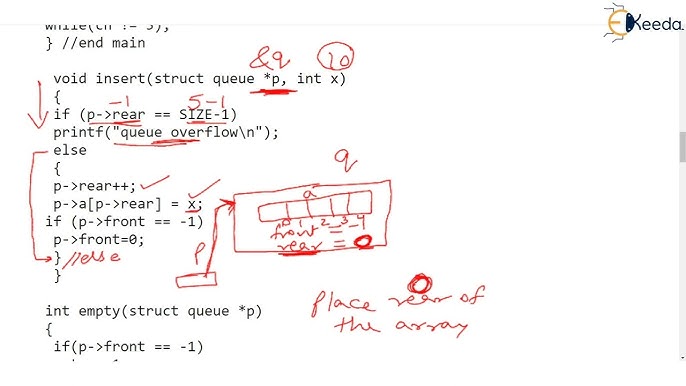 while(ch != 5);
} //end main
Ekeeda
&q 10
void insert(struct queue *p, int x)
{
-1 5-1
if (p->rear == SIZE-1)
printf("queue overflow\n");
else
{
p->rear++;
p->a[p->rear] = x;
if (p->front == -1)
p->front=0;
} //else
}
q
a
0 1 2 3 4
front = -1
rear = 0
P
0
Place rear of
the array
int empty(struct queue *p)
{
if(p->front == -1)